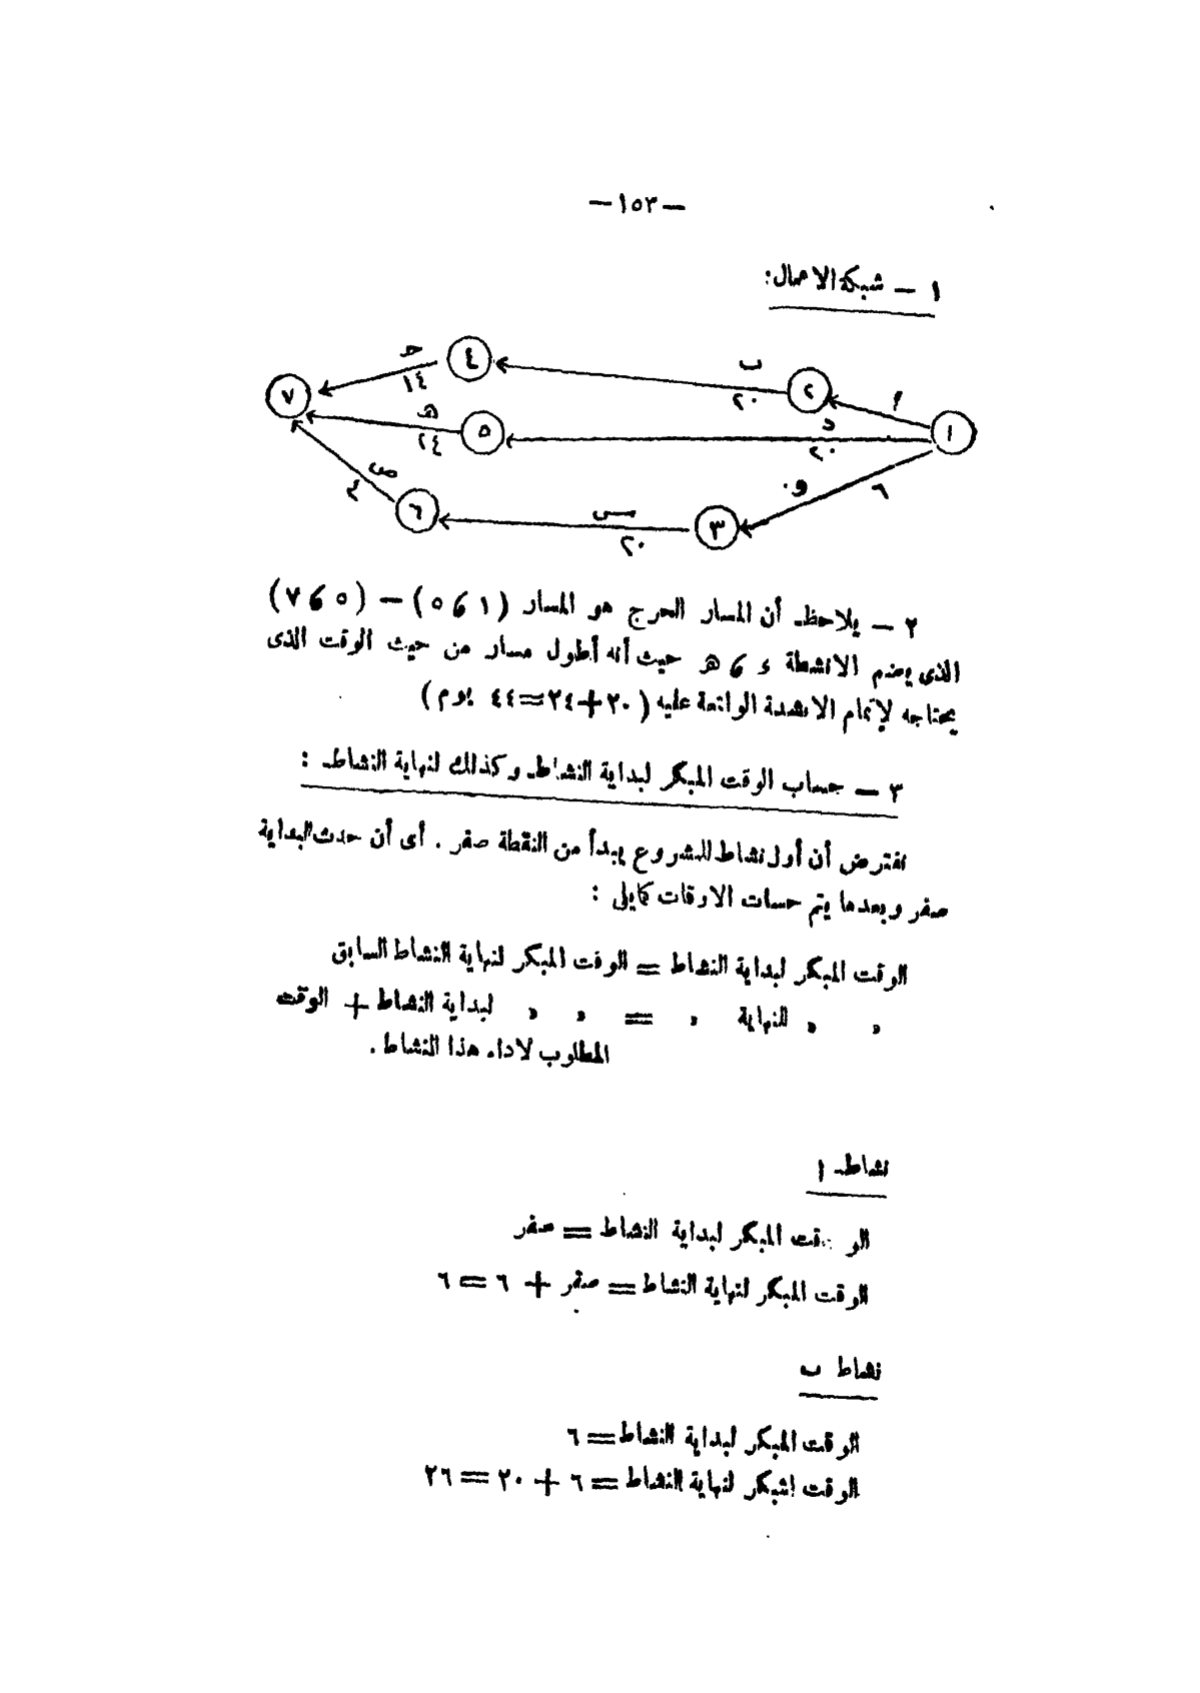 — ١٥٣ —
١ — شبكة الاعمال:
٤
ح
١٤
٧
ب
٢٠
٢
أ
١
هـ
٢٤
٥
د
٢٠
و
٦
ص
٦
س
٢٠
٣
٢ — يلاحظ أن المسار الحرج هو المسار (١ ، ٥) — (٥ ، ٧)
الذى يضم الانشطة ء ، هـ حيث أنه أطول مسار من حيث الوقت الذى
يحتاجه لإتمام الانشطة الواقعة عليه (٢٠+٢٤=٤٤ يوم)
٣ — حساب الوقت المبكر لبداية النشاط وكذلك لنهاية النشاط :
نفترض أن أول نشاط للمشروع يبدأ من النقطة صفر . أى أن حدث البداية
صفر وبعدها يتم حسات الاوقات كمايلى :
الوقت المبكر لبداية النشاط = الوقت المبكر لنهاية النشاط السابق
، ، للنهاية ، = ، ، لبداية النشاط + الوقت
المطلوب لاداء هذا النشاط .
نشاط ا
الوقت المبكر لبداية النشاط = صفر
الوقت المبكر لنهاية النشاط = صفر + ٦ = ٦
نشاط ب
الوقت المبكر لبداية النشاط = ٦
الوقت المبكر لنهاية النشاط = ٦ + ٢٠ = ٢٦